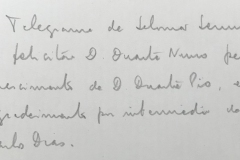 Telegrama de
felicita D. Duarte Nuno pe
nascimento de D Duarte Pio, e
gradecimento por intermédio do
ulo Dias.